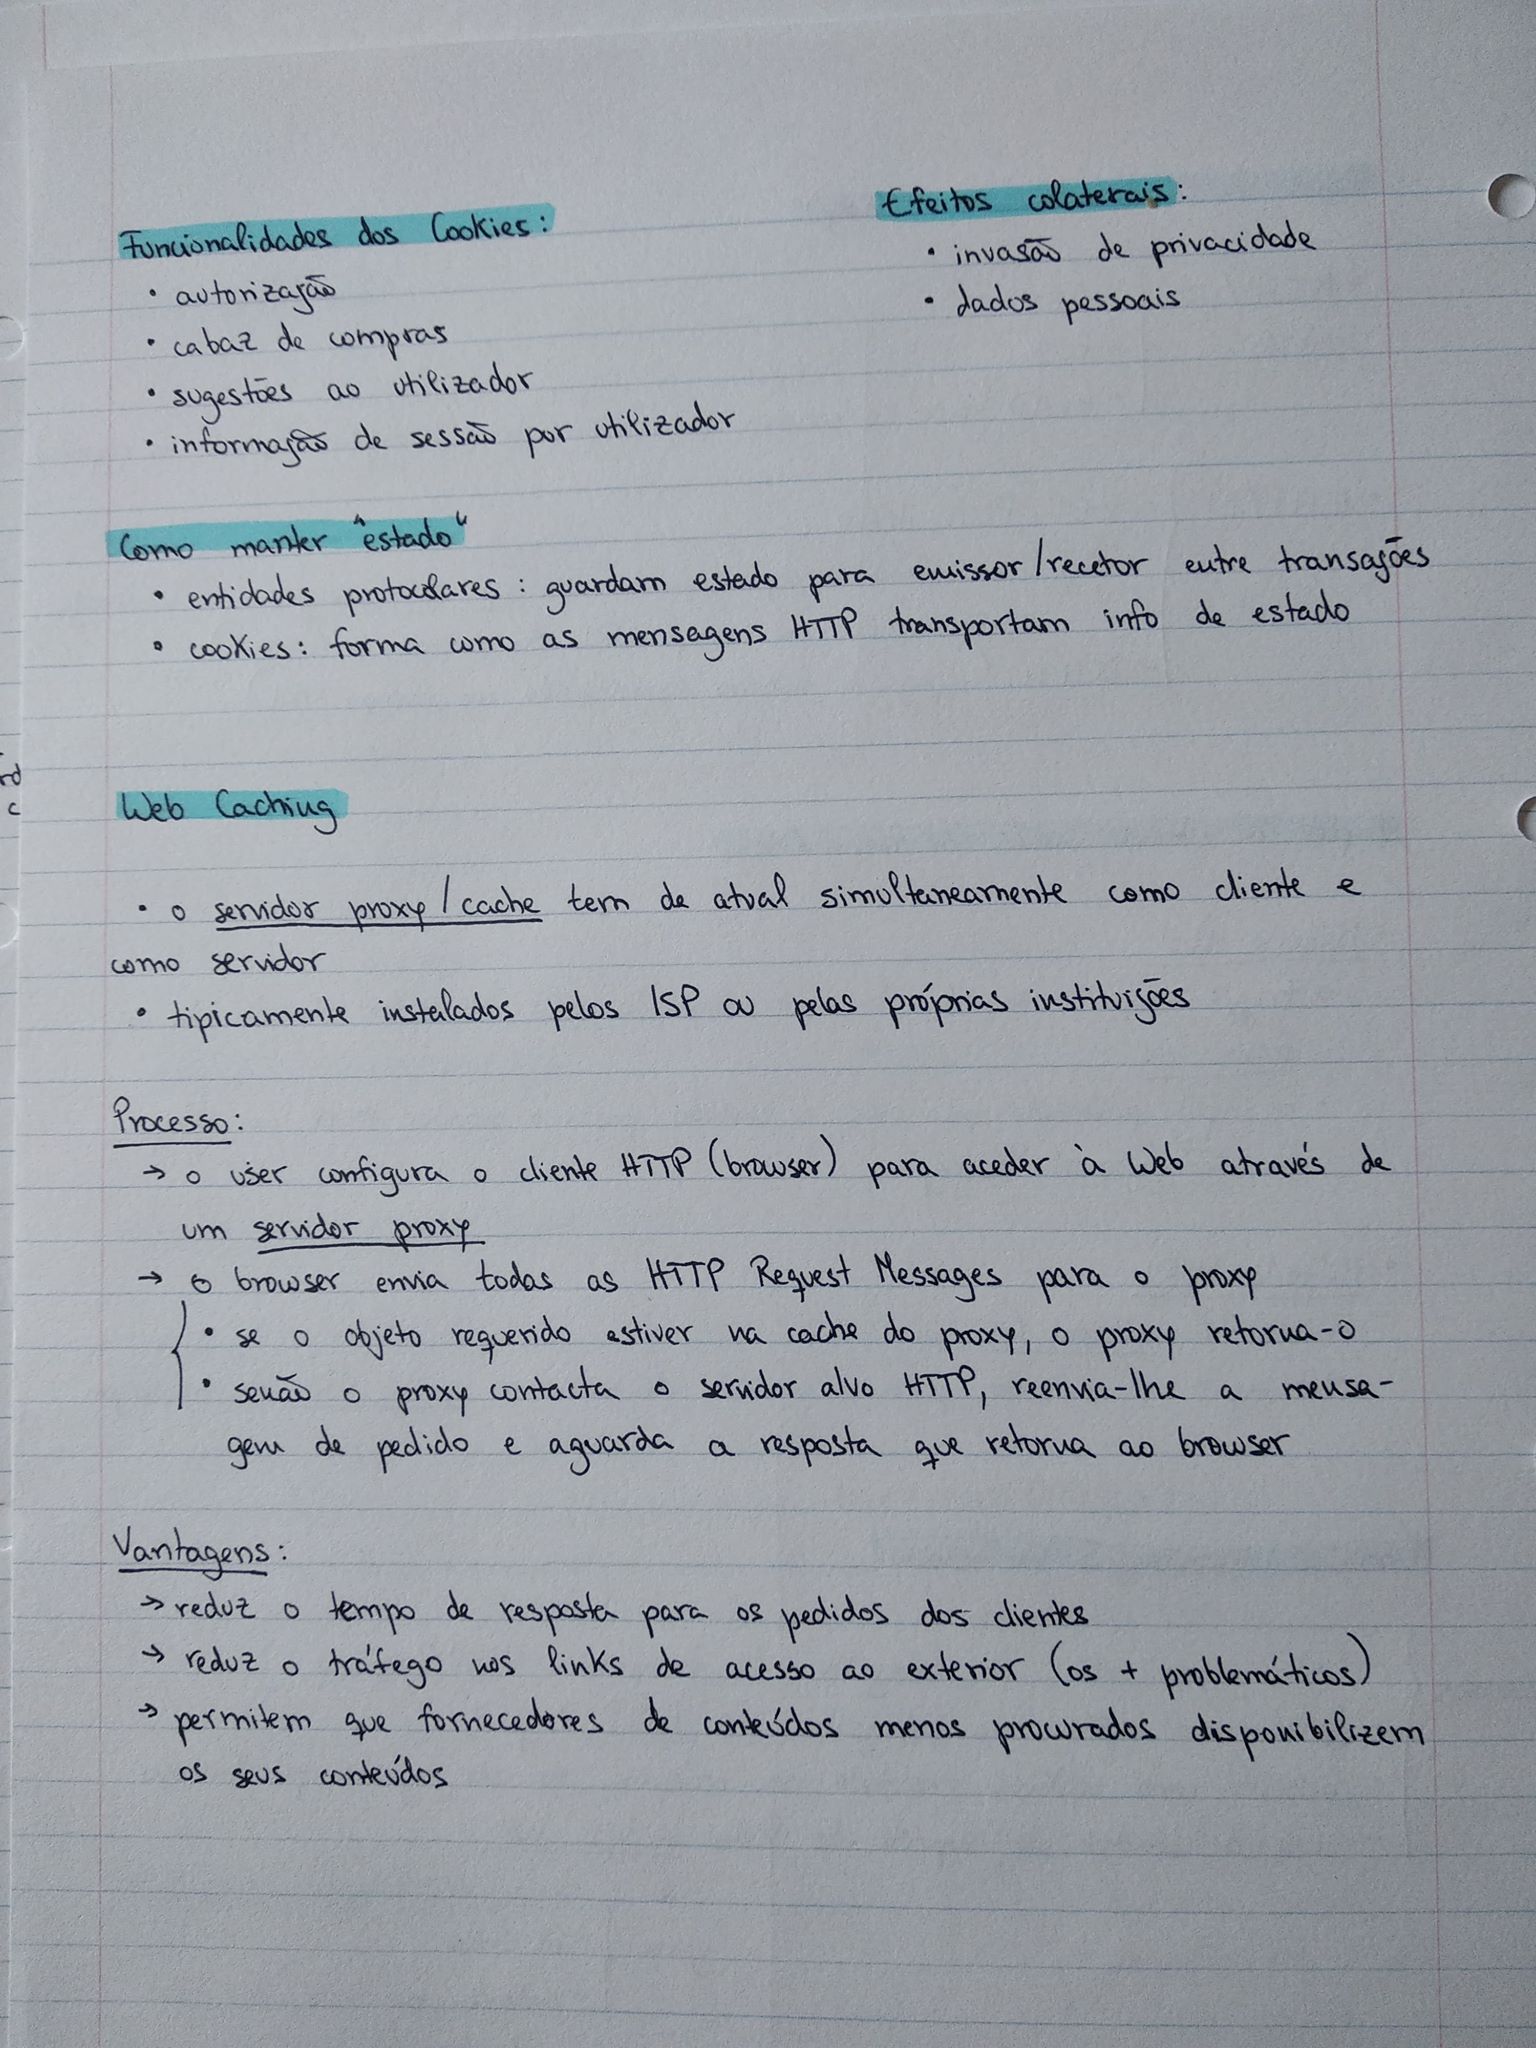 Funcionalidades dos Cookies:
• autorização
• cabaz de compras
• sugestões ao utilizador
• informação de sessão por utilizador
Efeitos colaterais:
• invasão de privacidade
• dados pessoais
Como manter "estado"
• entidades protocolares: guardam estado para emissor/recetor entre transações
• cookies: forma como as mensagens HTTP transportam info de estado
Web Caching
• o servidor proxy/cache tem de atual simultaneamente como cliente e
como servidor
• tipicamente instalados pelos ISP ou pelas próprias instituições
Processo:
→ o user configura o cliente HTTP (browser) para aceder à Web através de
um servidor proxy
→ o browser envia todas as HTTP Request Messages para o proxy
• se o objeto requerido estiver na cache do proxy, o proxy retorna-o
• senão o proxy contacta o servidor alvo HTTP, reenvia-lhe a mensa-
gem de pedido e aguarda a resposta que retorna ao browser
Vantagens:
→ reduz o tempo de resposta para os pedidos dos clientes
→ reduz o tráfego nos links de acesso ao exterior (os + problemáticos)
→ permitem que fornecedores de conteúdos menos procurados disponibilizem
os seus conteúdos
rd
c